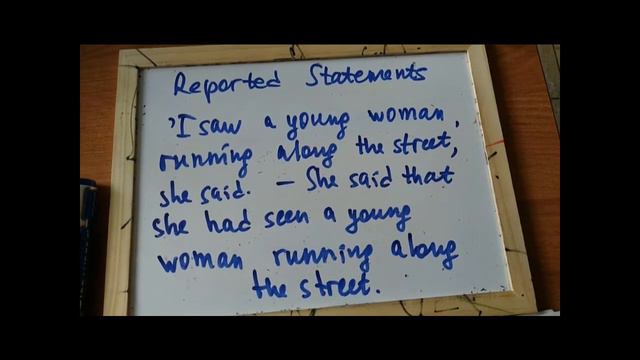 Reported Statements
'I saw a young woman,
running along the street,
she said. – She said that
she had seen a young
woman running along
the street.